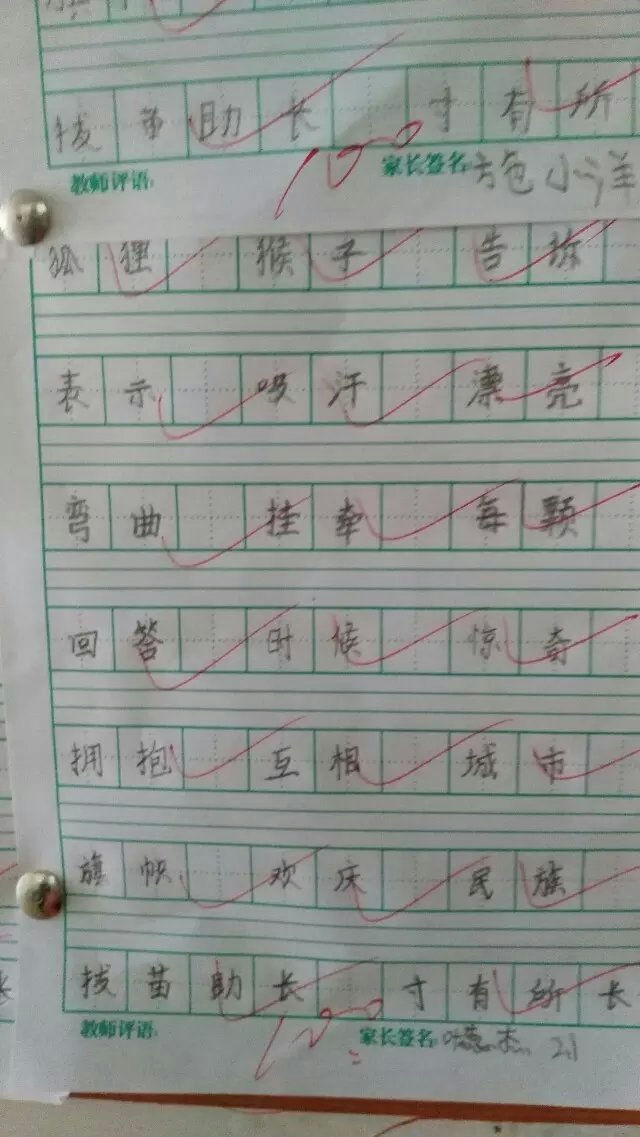 拔苗助长 寸有所
100
教师评语: 家长签名: 包小洋
狐狸 猴子 告诉
表示 吸汗 漂亮
弯曲 挂牵 每颗
回答 时候 惊奇
拥抱 互相 城市
旗帜 欢庆 民族
拔苗助长 寸有所长
100
教师评语: 家长签名: